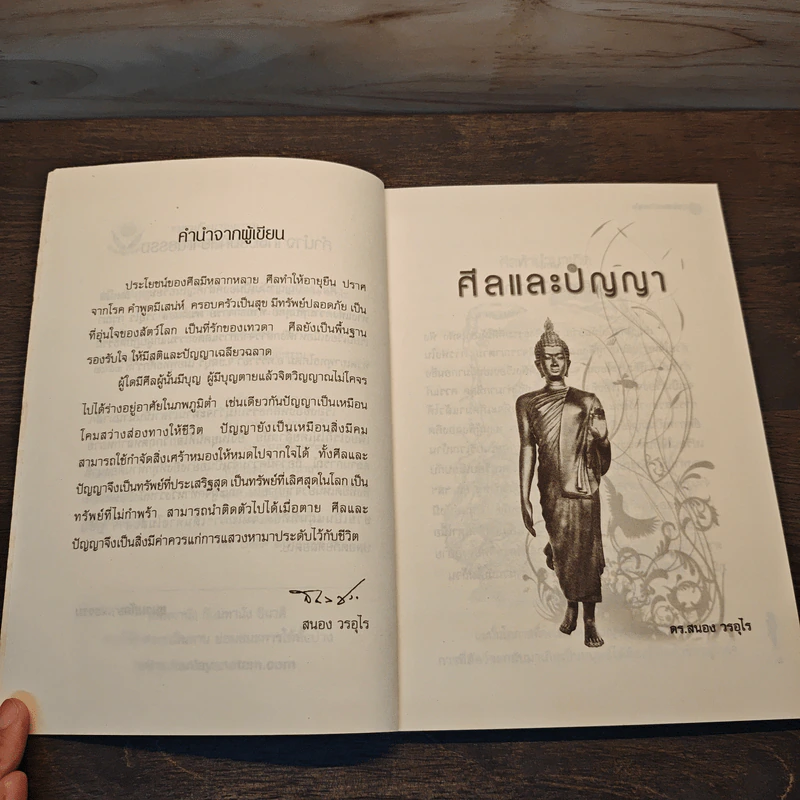 คำนำจากผู้เขียน
ประโยชน์ของศีลมีหลากหลาย ศีลทำให้อายุยืน ปราศ
จากโรค คำพูดมีเสน่ห์ ครอบครัวเป็นสุข มีทรัพย์ปลอดภัย เป็น
ที่อุ่นใจของสัตว์โลก เป็นที่รักของเทวดา ศีลยังเป็นพื้นฐาน
รองรับใจ ให้มีสติและปัญญาเฉลียวฉลาด
ผู้ใดมีศีลผู้นั้นมีบุญ ผู้มีบุญตายแล้วจิตวิญญาณไม่โคจร
ไปได้ร่างอยู่อาศัยในภพภูมิต่ำ เช่นเดียวกันปัญญาเป็นเหมือน
โคมสว่างส่องทางให้ชีวิต ปัญญายังเป็นเหมือนสิ่งมีคม
สามารถใช้กำจัดสิ่งเศร้าหมองให้หมดไปจากใจได้ ทั้งศีลและ
ปัญญาจึงเป็นทรัพย์ที่ประเสริฐสุด เป็นทรัพย์ที่เลิศสุดในโลก เป็น
ทรัพย์ที่ไม่กำพร้า สามารถนำติดตัวไปได้เมื่อตาย ศีลและ
ปัญญาจึงเป็นสิ่งมีค่าควรแก่การแสวงหามาประดับไว้กับชีวิต
สนอง วรอุไร
ศีลและปัญญา
ดร.สนอง วรอุไร